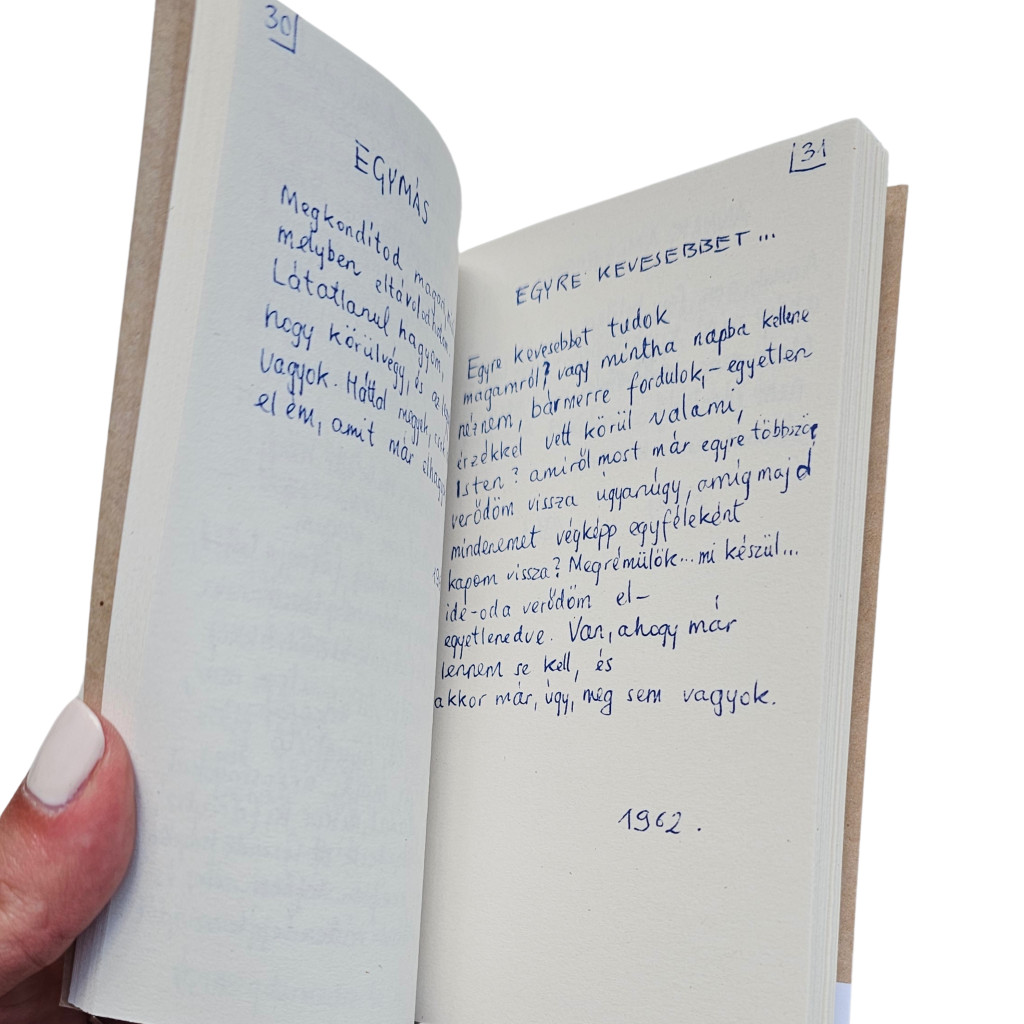 30
EGYMÁS
Megkondítod
melyben eltávolodtam.
Látatlanul hagyom,
hogy körülvégy, és az
vagyok. Háttal megyek,
elém, amit már
31
EGYRE KEVESEBBET...
Egyre kevesebbet tudok
magamról? vagy mintha napba kellene
néznem, bármerre fordulok, – egyetlen
érzékkel vett körül valami,
Isten? amiről most már egyre többször
verődöm vissza úgyanúgy, amíg majd
mindenemet végképp egyféleként
kapom vissza? Megrémülök... mi készül...
ide-oda verődöm el–
egyetlenedve. Van, ahogy már
lennem se kell, és
akkor már, úgy, még sem vagyok.
1962.